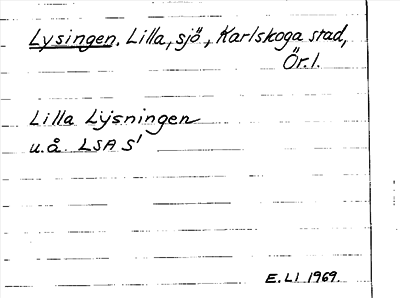 Lysingen, Lilla, sjö, Karlskoga stad,
Ör.l.
Lilla Lÿsningen
u.å. LSA S¹
E.LI 1969.